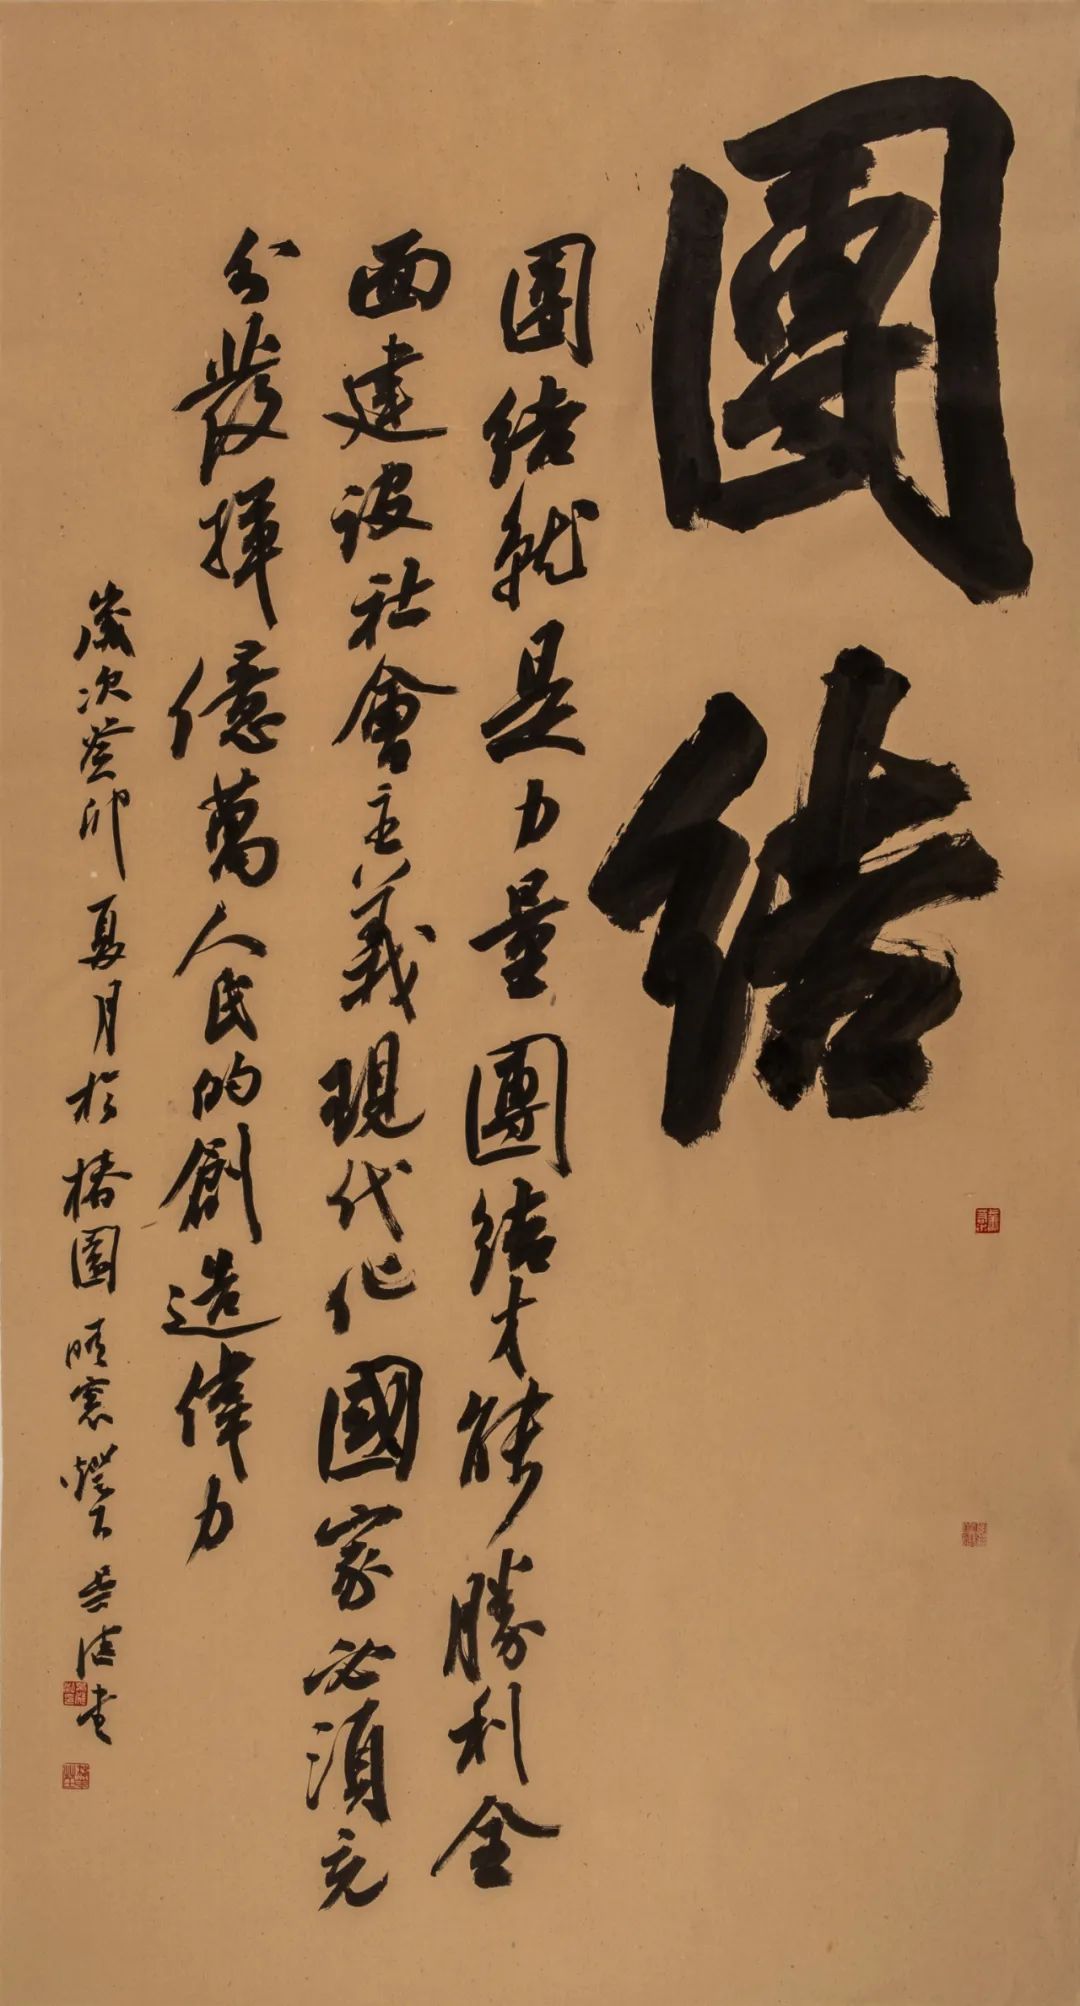 團结
團结就是力量團结才能勝利全
面建設社會主義現代化國家必須充
分發揮億萬人民的創造偉力
歲次癸卯夏月於椿園晴窓燈下岳浩书